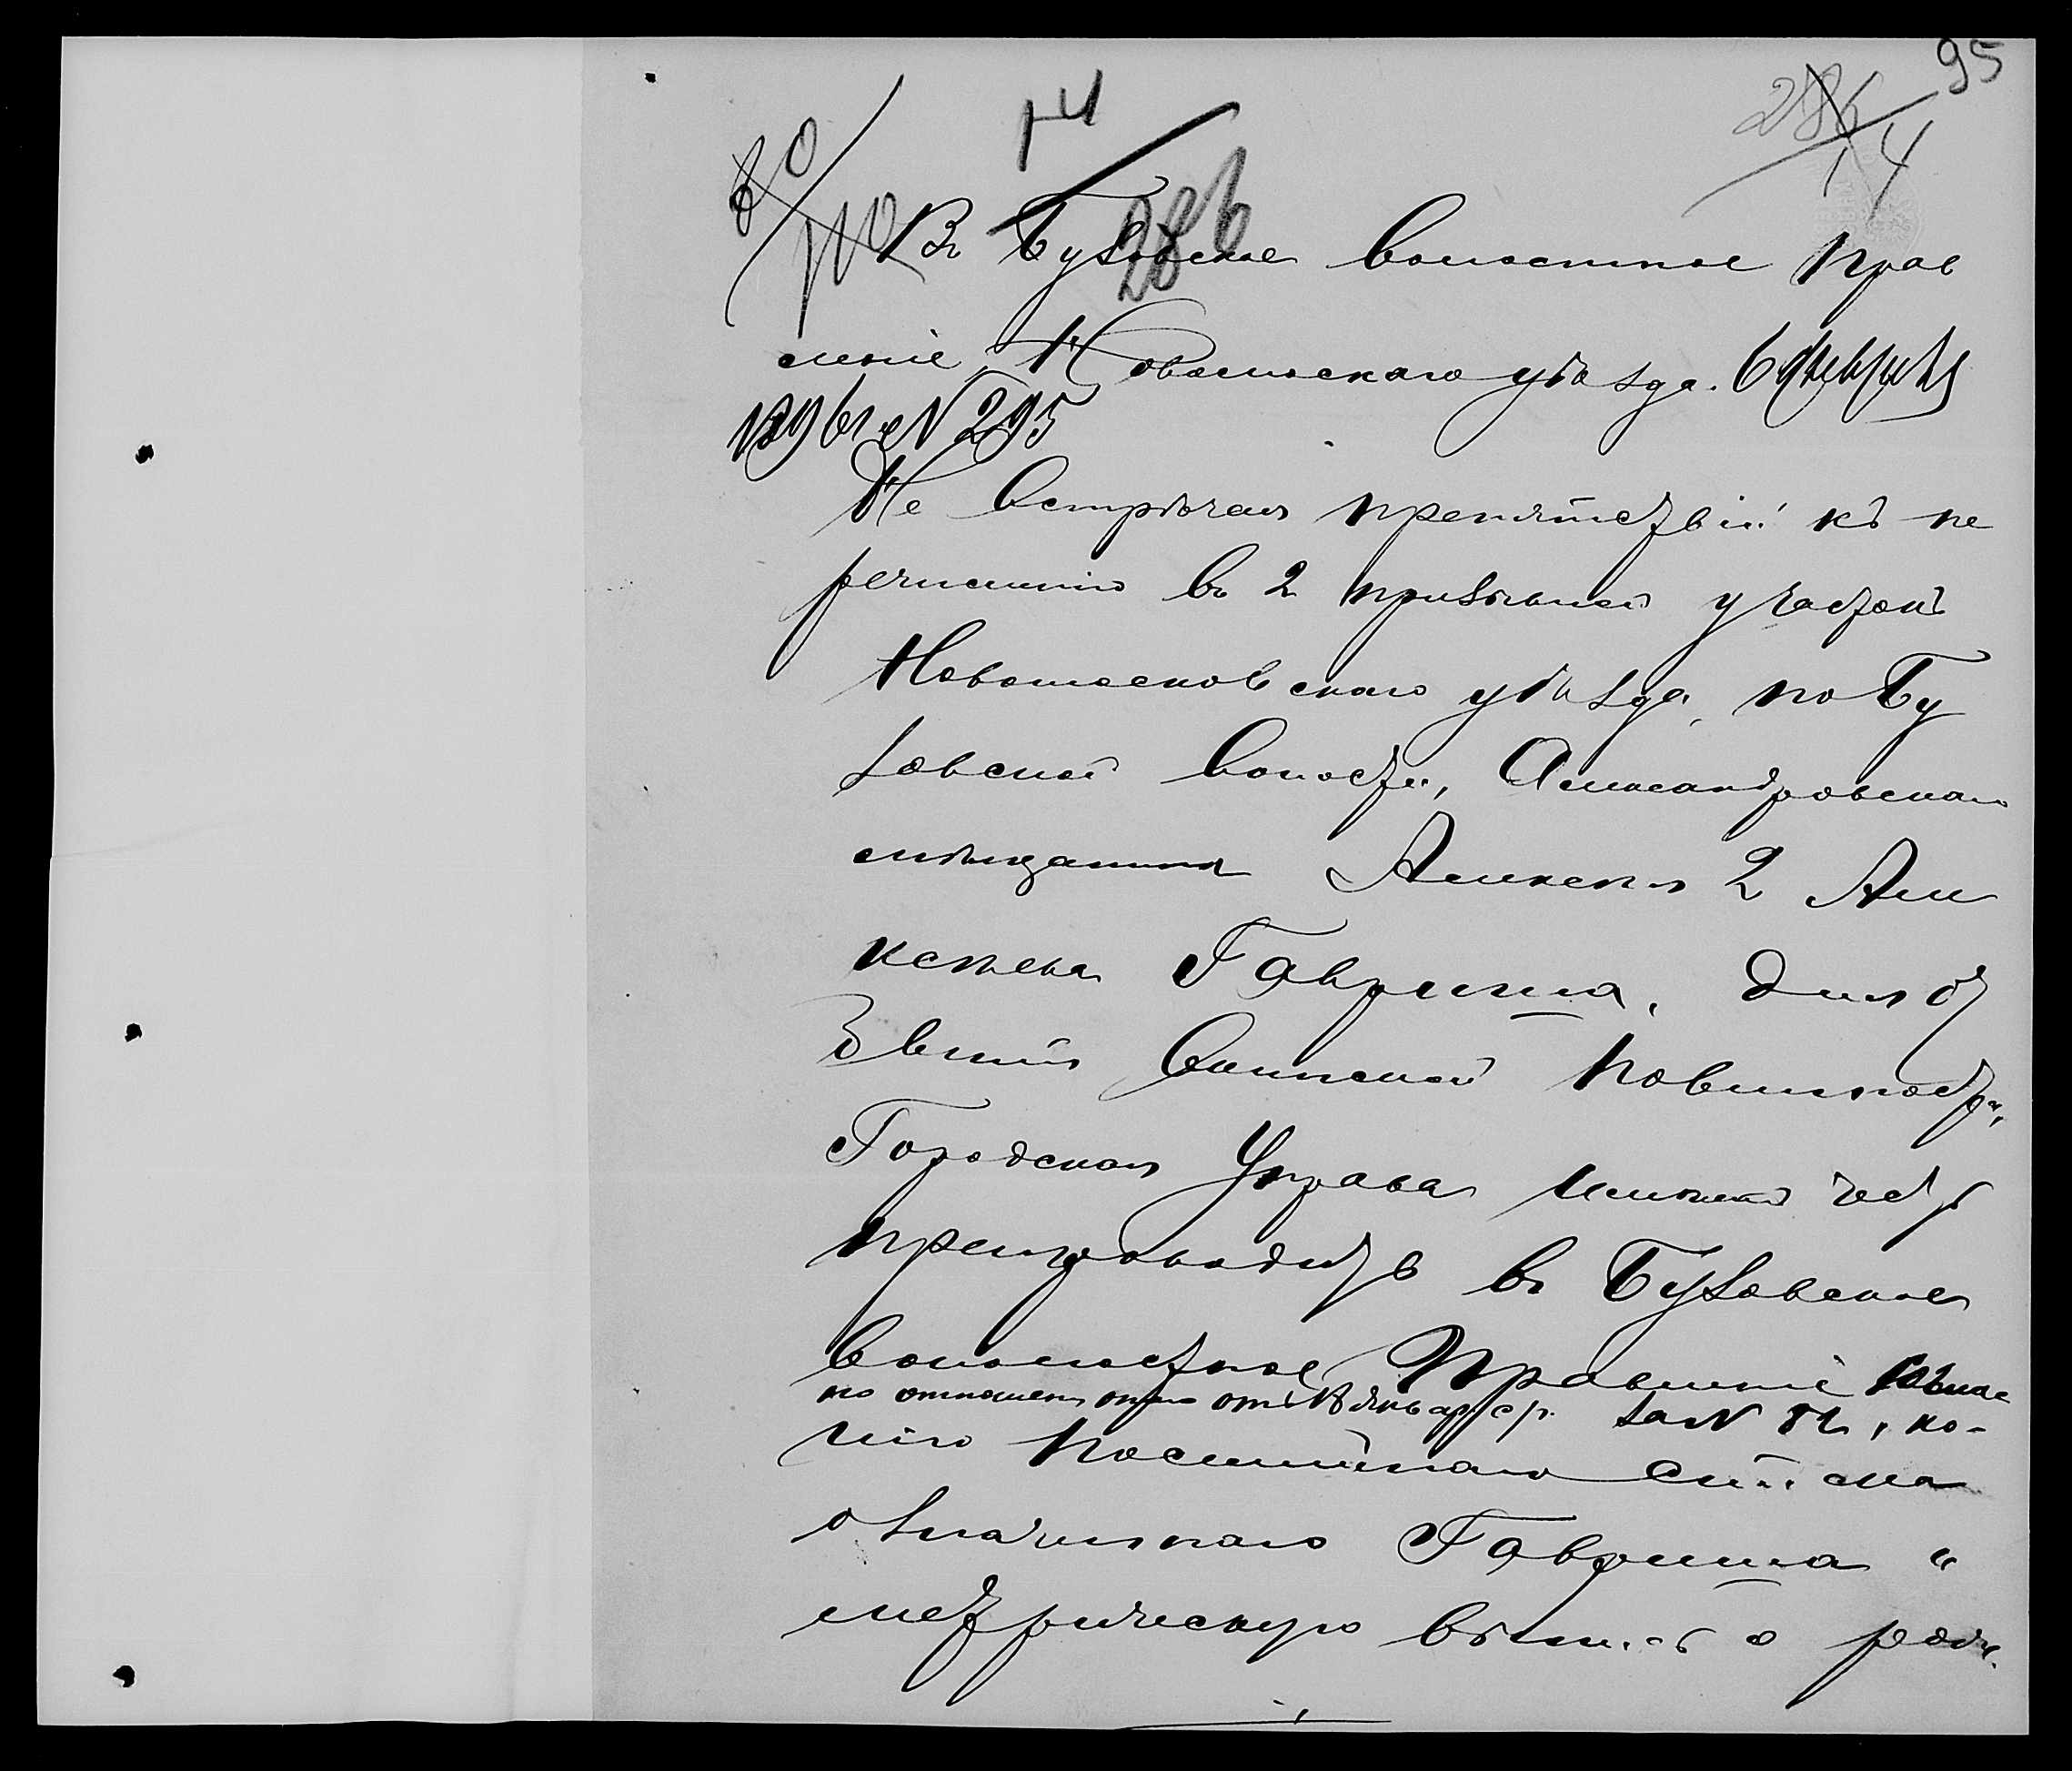 95
286
14
14
286
80
110
Въ Бузовское волостное Прав
леніе, Новомоск​аго уѣзда. 6 Февраля
1896 г. № 295
Не встрѣчая препятствій къ пе
речисленію въ 2 призывной участокъ
Новомосковскаго уѣзда, по Бу
зовской волости, Александровскаго
мѣщанина Алексѣя 2 Але
ксѣева Гавриша, для от
быванія воинской повинности,
Городская Управа имѣетъ честь
препроводить въ Бузовское
волостное Правленіе соглас
но отношен. онаго отъ января с/г. за № 81, ко-
пію посемейнаго списка
означеннаго Гавриша и
метрическую выпись о рож.